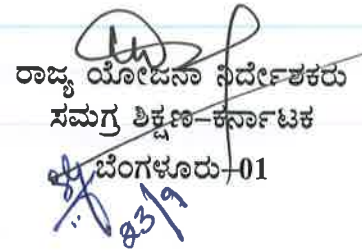 ರಾಜ್ಯ ಯೋಜನಾ ನಿರ್ದೇಶಕರು
ಸಮಗ್ರ ಶಿಕ್ಷಣ-ಕರ್ನಾಟಕ
ಬೆಂಗಳೂರು-01
23/9